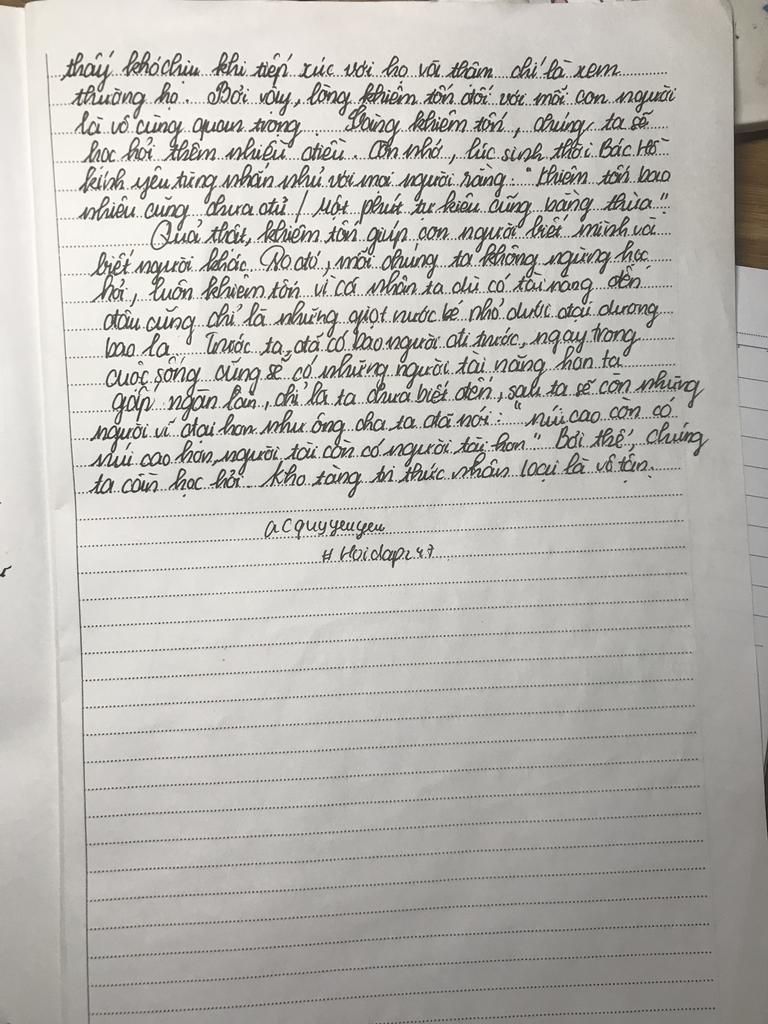 thấy khó chịu khi tiếp xúc với họ và thậm chí là xem
thường họ. Bởi vậy, lòng khiêm tốn đối với mỗi con người
là vô cùng quan trọng. khiêm tốn, chúng ta sẽ
học hỏi thêm nhiều điều. Còn nhớ, lúc sinh thời Bác Hồ
kính yêu từng nhắn nhủ với mọi người rằng: "Khiêm tốn bao
nhiêu cũng chưa đủ / Một phút tự kiêu cũng bằng thừa".
Quả thật, khiêm tốn giúp con người biết mình và
biết người khác. Do đó, mỗi chúng ta không ngừng học
hỏi, luôn khiêm tốn vì cá nhân ta dù có tài năng đến
đâu cũng chỉ là những giọt nước bé nhỏ dưới đại dương
bao la. Trước ta, đã có bao người đi trước, ngay trong
cuộc sống cũng sẽ có những người tài năng hơn ta
gấp ngàn lần, chỉ là ta chưa biết đến, sau ta sẽ còn những
người vĩ đại hơn như ông cha ta đã nói: "núi cao còn có
núi cao hơn, người tài còn có người tài hơn" Bởi thế, chúng
ta cần học hỏi. Kho tàng tri thức nhân loại là vô tận.
acquyyeuyeu
# Hoidap247